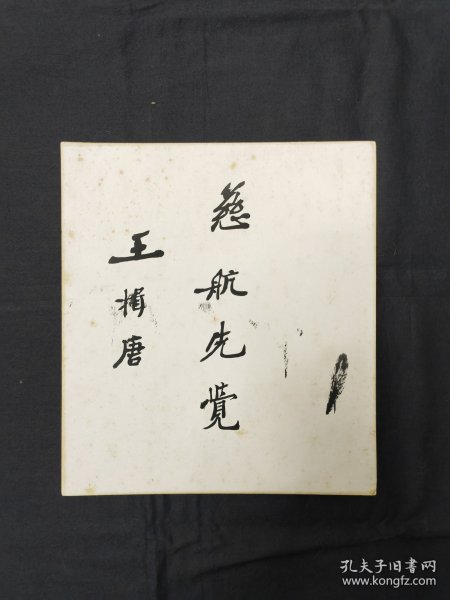 慈航先覺
王揖唐
孔夫子旧书网
www.kongfz.com